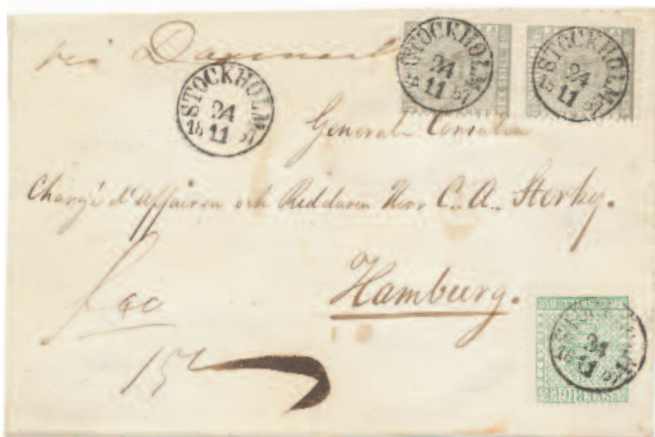 via Danmark
STOCKHOLM 24 11 1857
STOCKHOLM 24 11 1857
STOCKHOLM 24 11 1857
General Consulen
Chargé d'affairen och Riddaren Herr C. A. Sterky.
Hamburg.
STOCKHOLM 24 11 1857